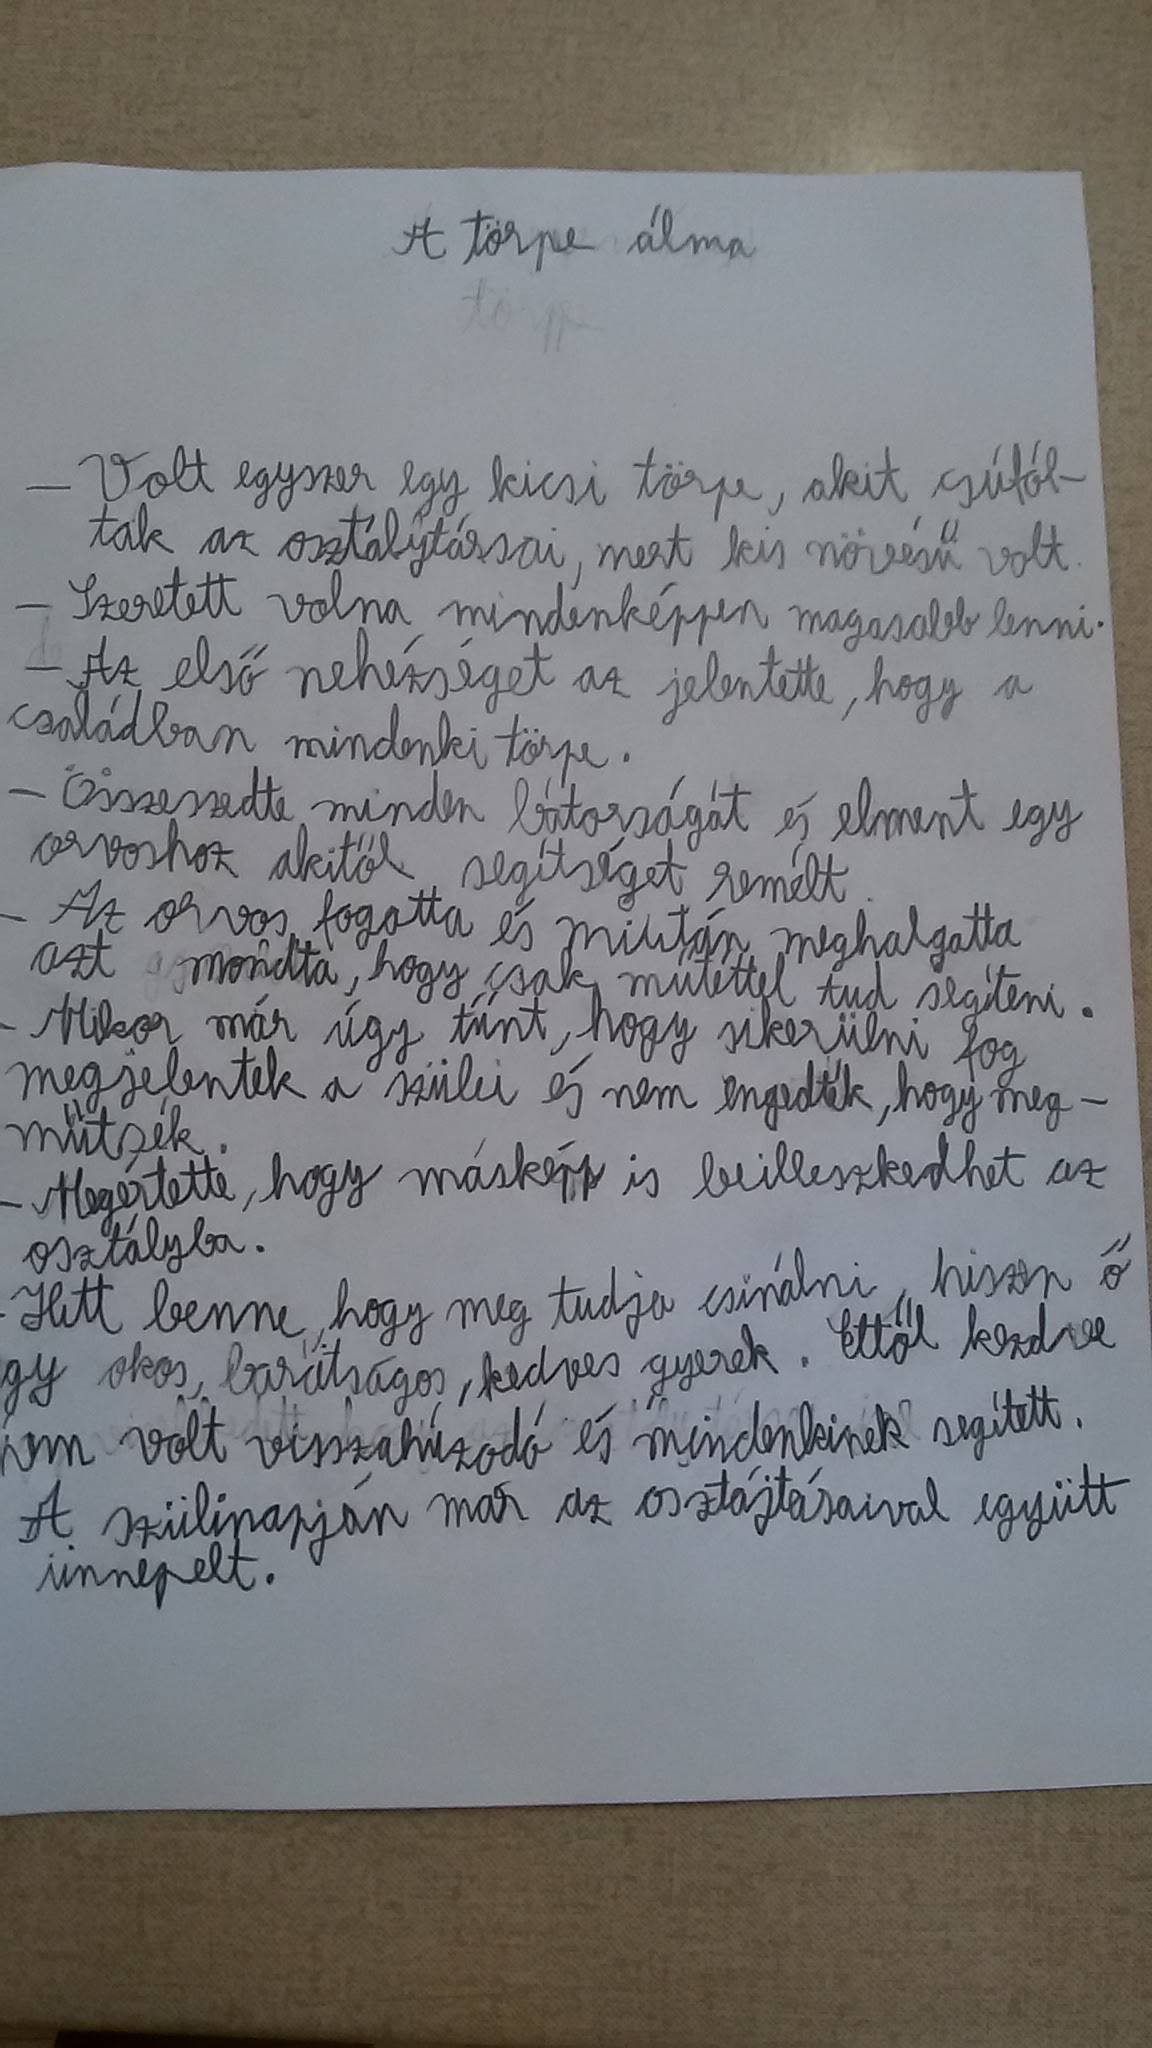 A törpe álma
törpe
– Volt egyszer egy kicsi törpe, akit csúfól-
tak az osztálytársai, mert kis növésű volt.
– Szeretett volna mindenképpen magasabb lenni.
– Az első nehézséget az jelentette, hogy a
családban mindenki törpe.
– Összeszedte minden bátorságát és elment egy
orvoshoz akitől segítséget remélt.
– Az orvos fogatta és miután meghalgatta
azt mondta, hogy csak műtéttel tud segíteni.
– Mikor már úgy tűnt, hogy sikerülni fog
megjelentek a szülei és nem engedték, hogy meg-
műtsék.
– Megértette, hogy másképp is beilleszkedhet az
osztályba.
– Hitt benne, hogy meg tudja csinálni, hiszen ő
gy okos, barátságos, kedves gyerek. Ettől kezdve
nem volt visszahúzodó és mindenkinek segített.
A szülinapján már az osztájtásaival együtt
ünnepelt.